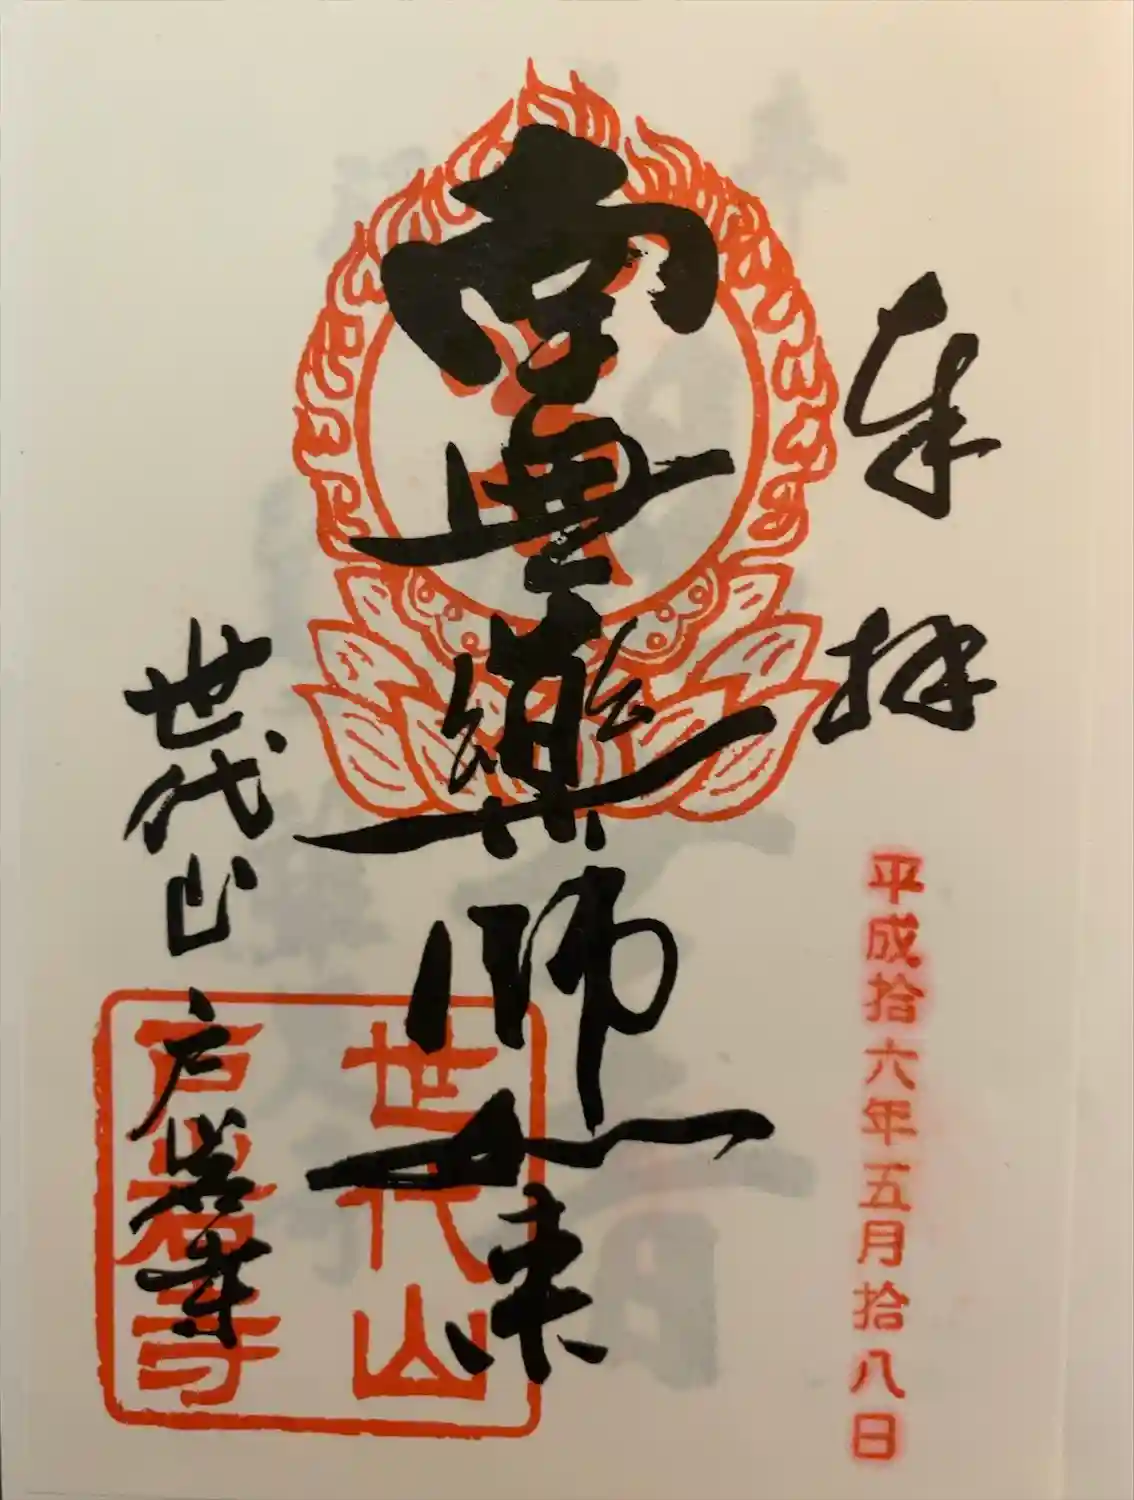 奉拝
平成拾六年五月拾八日
南無藥師如来
世代山
戸岩寺
世代山
戸岩寺